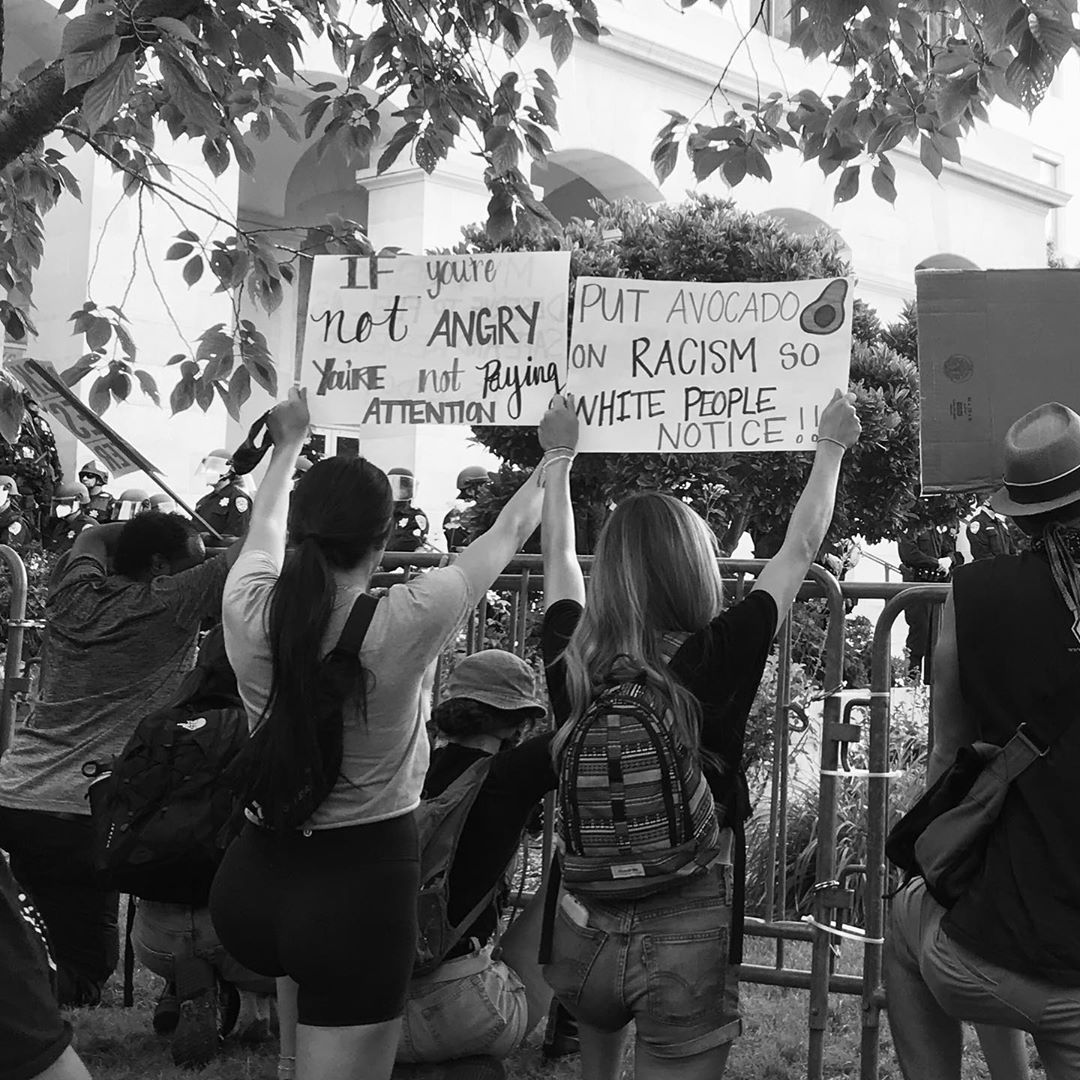 IF you're
not ANGRY
You're not Paying
ATTENTION
PUT AVOCADO
ON RACISM SO
WHITE PEOPLE
NOTICE!!